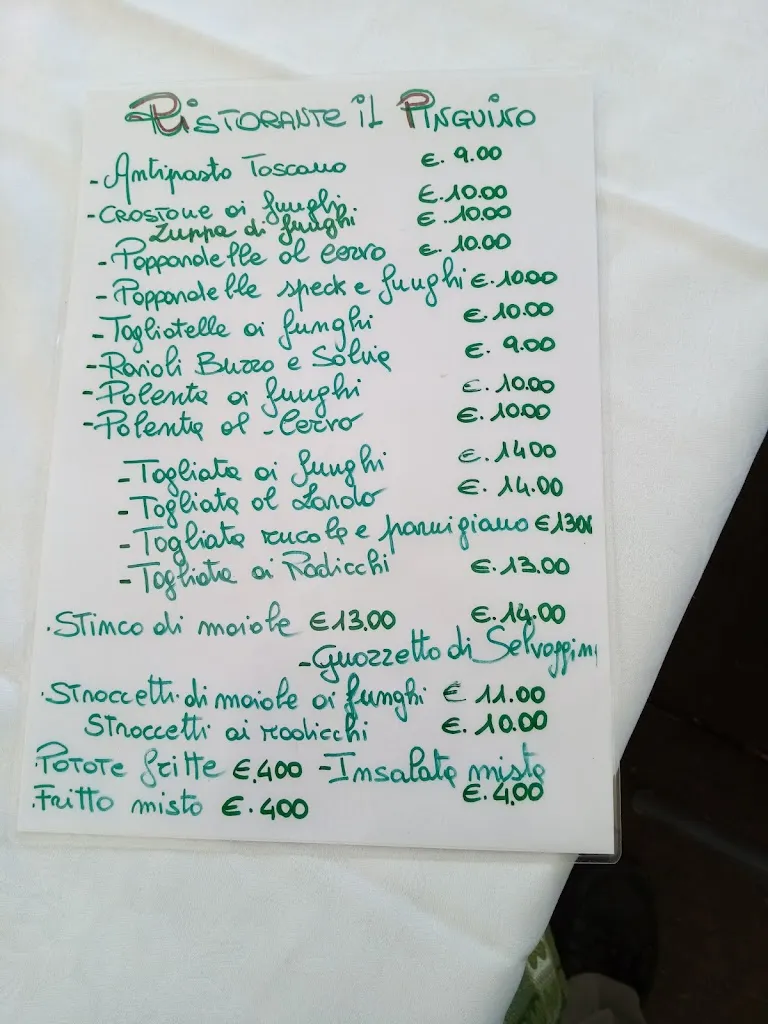 RISTORANTE IL PINGUINO
- Antipasto Toscano €. 9.00
- CROSTONE ai funghi €. 10.00
Zuppa di funghi €. 10.00
- Pappardelle al cervo €. 10.00
- Pappardelle speck e funghi €. 10.00
- Tagliatelle ai funghi €. 10.00
- Ravioli Burro e Salvia €. 9.00
- Polenta ai funghi €. 10.00
- Polenta al - Cervo €. 10.00
- Tagliata ai funghi €. 1400
- Tagliata al Lardo €. 14.00
- Tagliata rucola e parmigiano €1300
- Tagliata ai Radicchi €. 13.00
. STINCO di maiale €13.00 €. 14.00
- Guazzetto di Selvaggin
. STRACCETTI di maiale ai funghi € 11.00
STRACCETTI ai radicchi €. 10.00
PATATE fritte €.400 - Insalata mista
€. 4.00
. Fritto misto €. 400